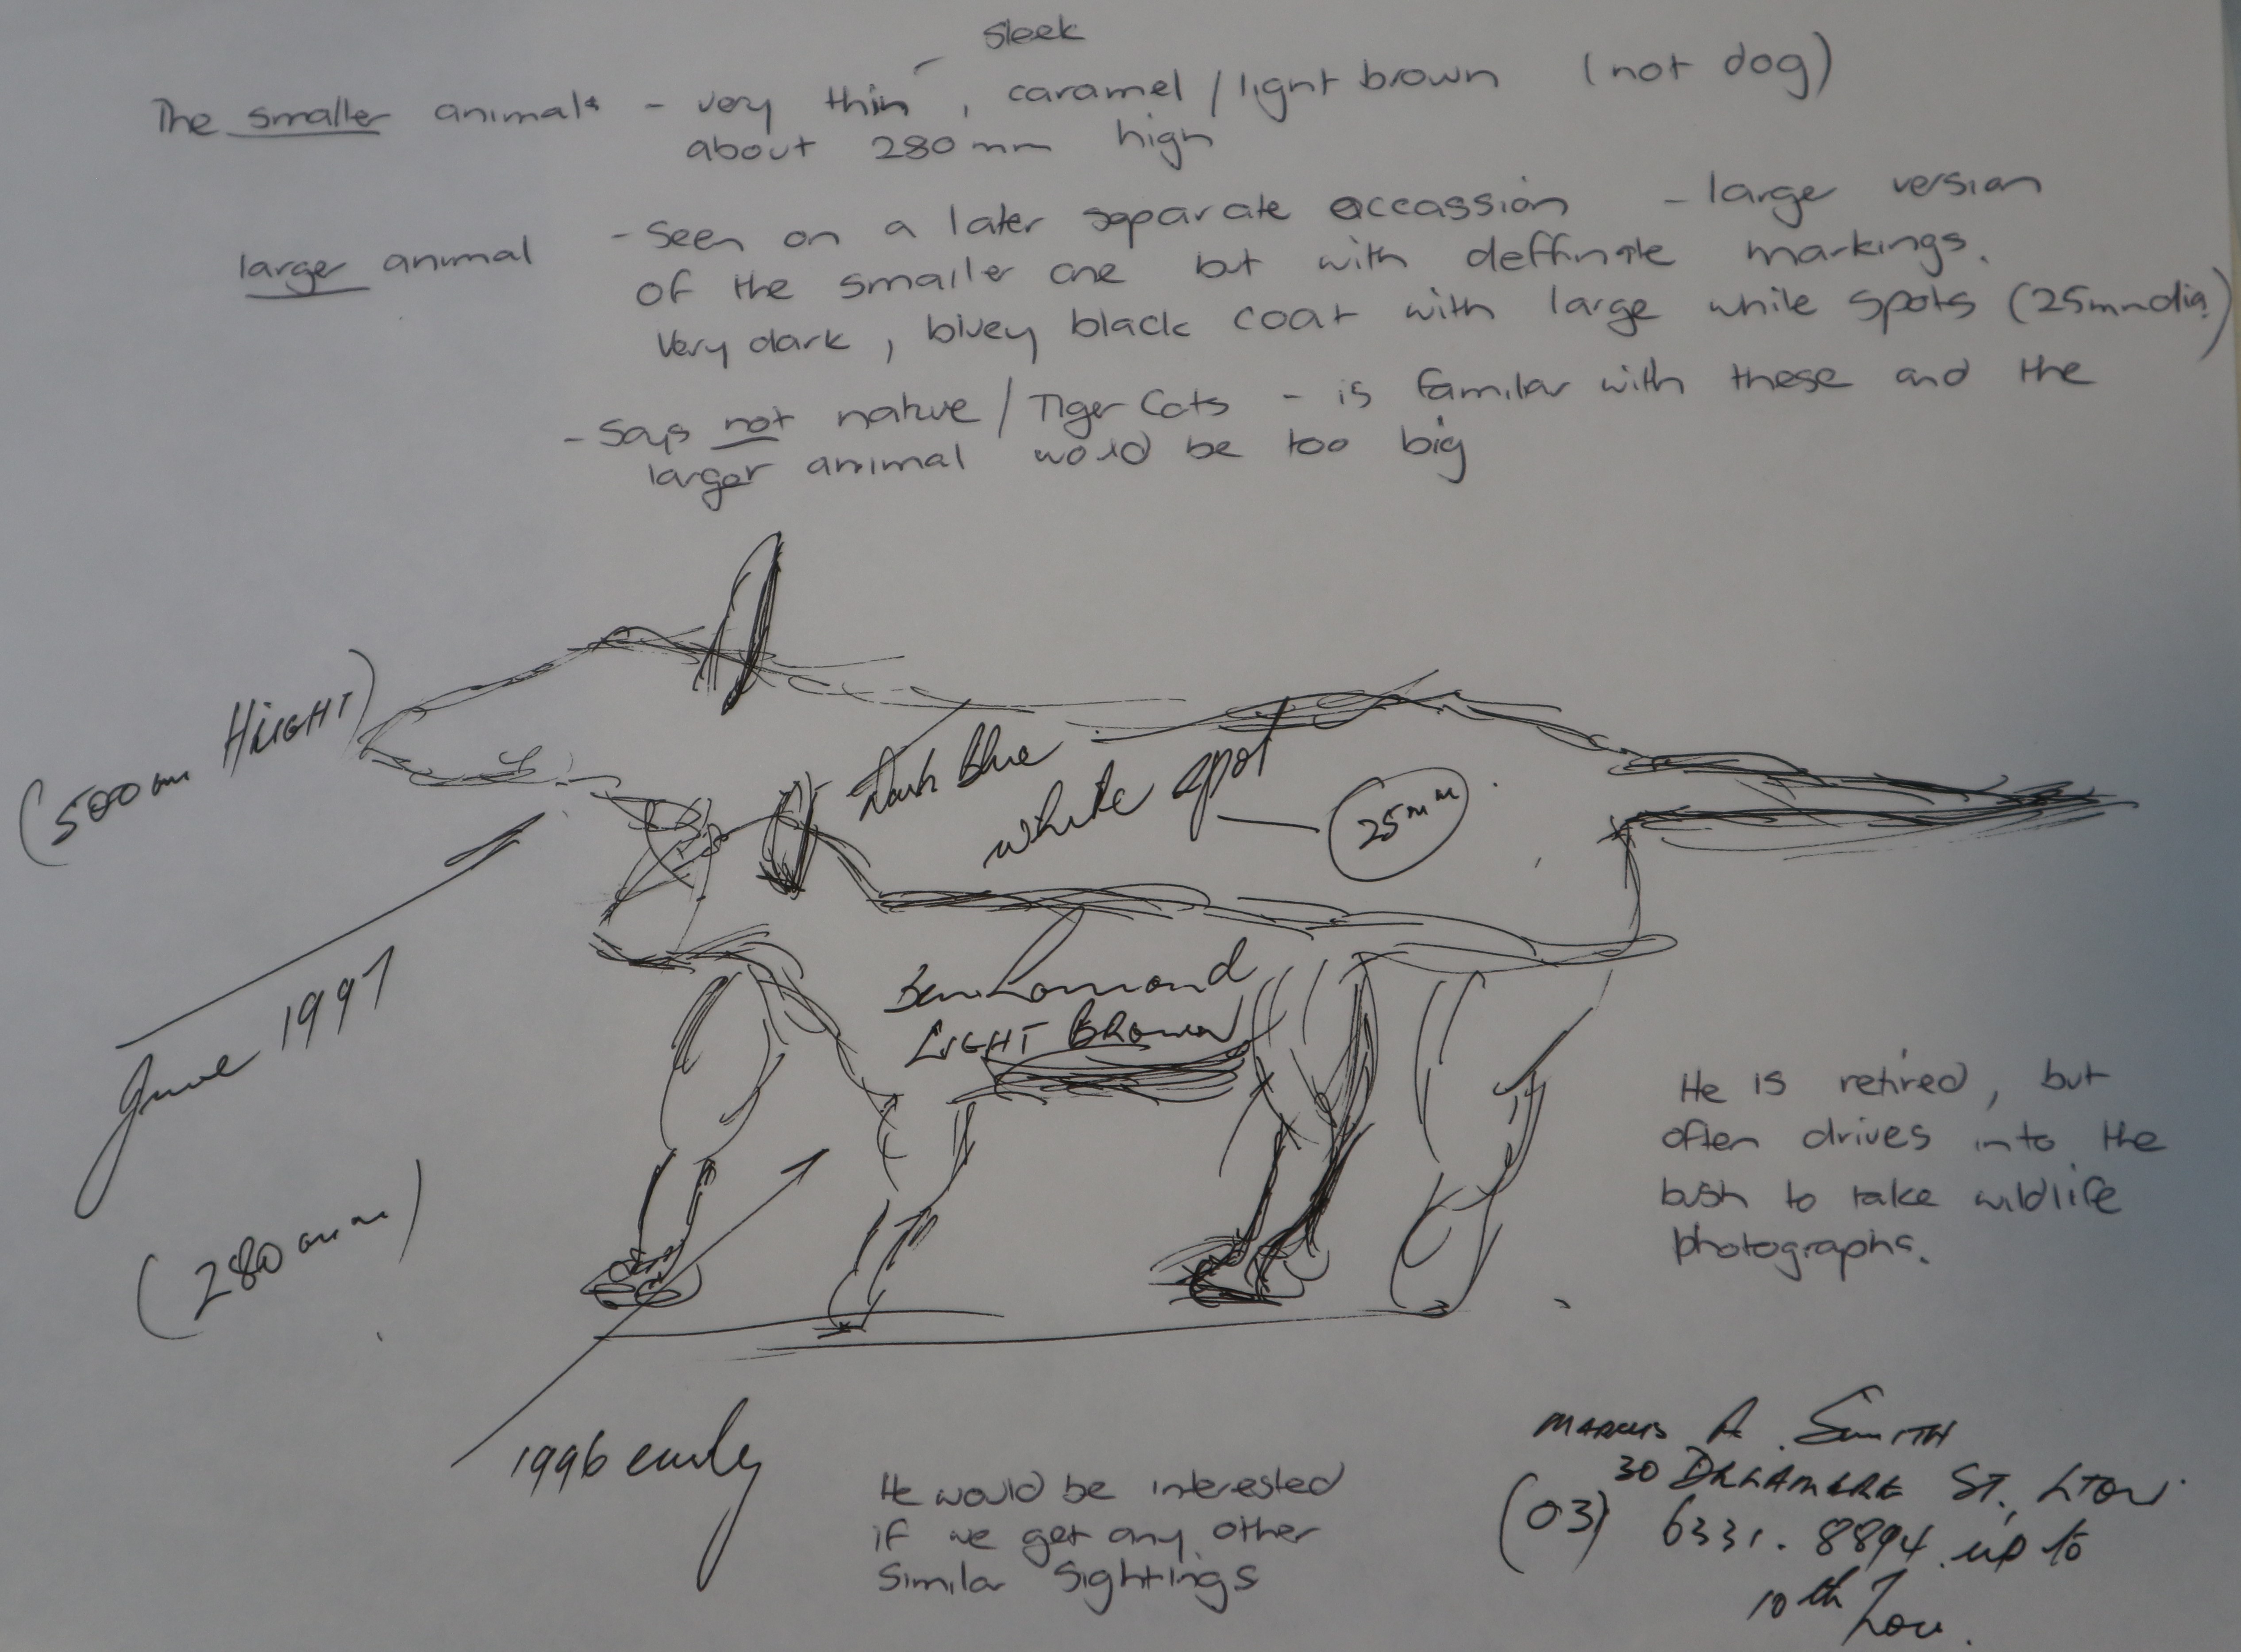 sleek
The smaller animals - very thin, caramel / light brown (not dog)
about 280mm high
larger animal - Seen on a later separate occassion - large version
of the smaller one but with deffinate markings.
Very dark, bluey black coat with large white spots (25mm dia.)
- Says not native / Tiger Cats - is familar with these and the
larger animal would be too big
(500mm HEIGHT)
Dark blue
white spot
25mm
June 1997
Ben Lomond
LIGHT BROWN
(280mm)
1996 early
He is retired, but
often drives into the
bush to take wildlife
photographs.
He would be interested
if we get any other
similar sightings
MARCUS A. SMITH
30 DELAMERE ST. LTON
(03) 6331.8894 up to
10th Nov.